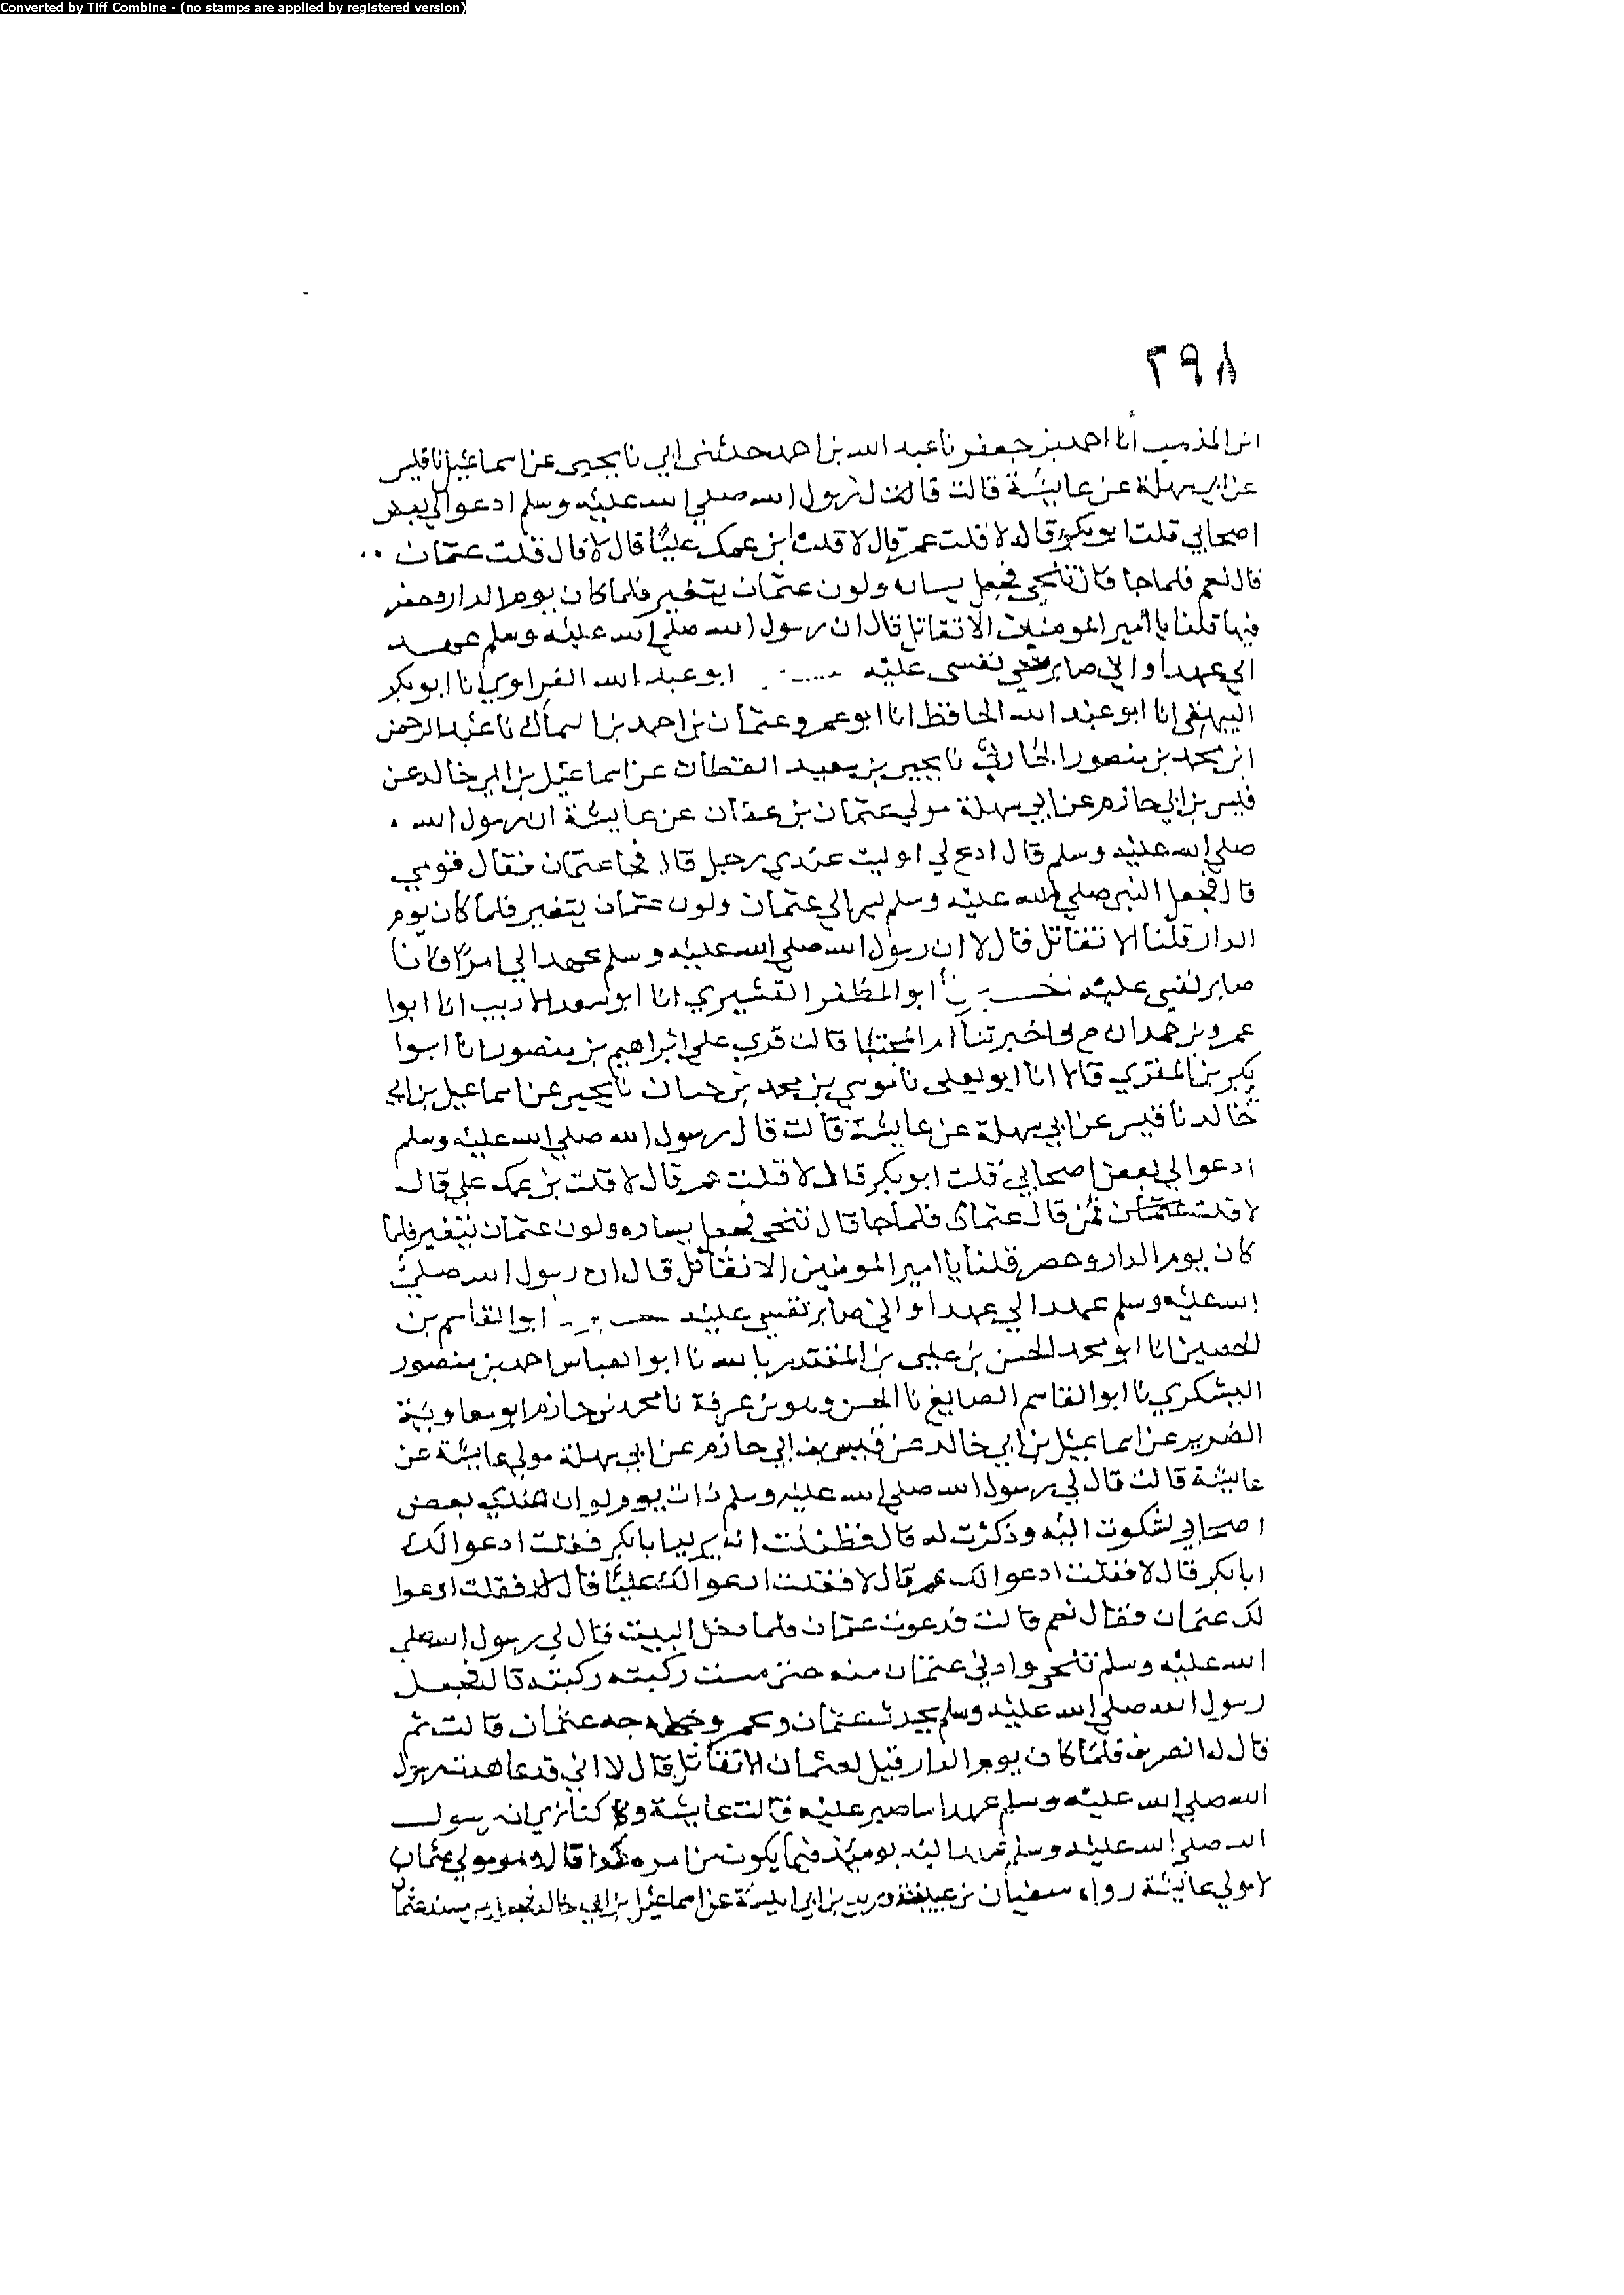 Converted by Tiff Combine - (no stamps are applied by registered version)
٢٩٨
ابن المذهب أنا احمد بن جعفر نا عبد الله بن احمد حدثني ابي نا يحيى عن اسماعيل نا قيس
عن ابي سهلة عن عايشة قالت قال رسول الله صلي الله عليه وسلم ادعوا لي بعض
اصحابي قلت ابو بكر قال لا قلت عمر قال لا قلت ابن عمك عليًا قال لا قال قلت عثمان
قال نعم فلما جا قال تنحي فجعل يساره ولون عثمان يتغير فلما كان يوم الدار وحصر
فيها قلنا يا أمير المومنين الا تقاتل قال ان رسول الله صلي الله عليه وسلم عهد
الي عهدا واني صابر نفسي عليه ابو عبد الله الفراوي انا ابو بكر
البيهقي انا ابو عبد الله الحافظ انا ابو عمرو عثمان بن احمد بن السماك نا عبد الرحمن
ابن محمد بن منصور الحارثي نا يحيى بن سعيد القطان عن اسماعيل بن ابي خالد عن
قيس بن ابي حازم عن ابي سهلة مولي عثمان بن عفان عن عايشة ان رسول الله
صلي الله عليه وسلم قال ادع لي او ليت عندي رجل قال فجا عثمان فقال قومي
قال فجعل النبي صلي الله عليه وسلم يسر الي عثمان ولون عثمان يتغير فلما كان يوم
الدار قلنا الا تقاتل قال لا ان رسول الله صلي الله عليه وسلم عهد الي امرًا فانا
صابر نفسي عليه أبو المظفر القشيري انا ابو سعد الاديب انا ابوا
عمرو بن حمدان ح واخبرتنا ام المجتبا قالت قري على ابراهيم بن منصور انا ابوا
بكر بن المقري قالا انا ابو يعلى نا موسي بن محمد بن حسان نا يحيى عن اسماعيل بن ابي
خالد نا قيس عن ابي سهلة عن عايشة قالت قال رسول الله صلي الله عليه وسلم
ادعوا لي بعض اصحابي قلت ابو بكر قال لا قلت عمر قال لا قلت بن عمك علي قال
لا قلت فمن قال عثمان فلما جا قال تنحي فجعل يساره ولون عثمان يتغير فلما
كان يوم الدار وحصر قلنا يا امير المومنين الا تقاتل قال ان رسول الله صلي
الله عليه وسلم عهد الي عهدا واني صابر نفسي عليه ابو القاسم بن
الحصين انا ابو محمد الحسن بن عيسى بن المقتدر بالله نا ابو العباس احمد بن منصور
اليشكري نا ابو القاسم الصايغ نا الحسن وهو بن عرفة نا محمد بن حازم ابو معاوية
الضرير عن اسماعيل بن ابي خالد عن قيس بن ابي حازم عن ابي سهلة مولي عايشة عن
عايشة قالت قال لي رسول الله صلي الله عليه وسلم ذات يوم لو ان عندي بعض
اصحابي لشكوت اليه وذكرت له قال فظننت انه يريد ابا بكر فقلت ادعوا لك
ابا بكر قال لا فقلت ادعوا لك عمر قال لا فقلت ادعوا لك عليًا قال لا فقلت ادعوا
لك عثمان فقال نعم قالت فدعوت عثمان فلما دخل البيت قال لي رسول الله صلي
الله عليه وسلم تنحي وادني عثمان منه حتى مست ركبته ركبته قال فجعل
رسول الله صلي الله عليه وسلم يحدث عثمان وجه عثمان قالت ثم
قال له انصرف فلما كان يوم الدار قيل لعثمان الا تقاتل قال لا اني قد عاهدت رسول
الله صلي الله عليه وسلم عهدا ساصبر عليه قالت عايشة كنا نري انه رسول
الله صلي الله عليه وسلم عهد اليه يومئذ فيما يكون من امره كذا قال وهو مولي عثمان
لا مولي عايشة رواه سفيان بن عيينة بن ابي انيسة عن اسماعيل بن ابي خالد